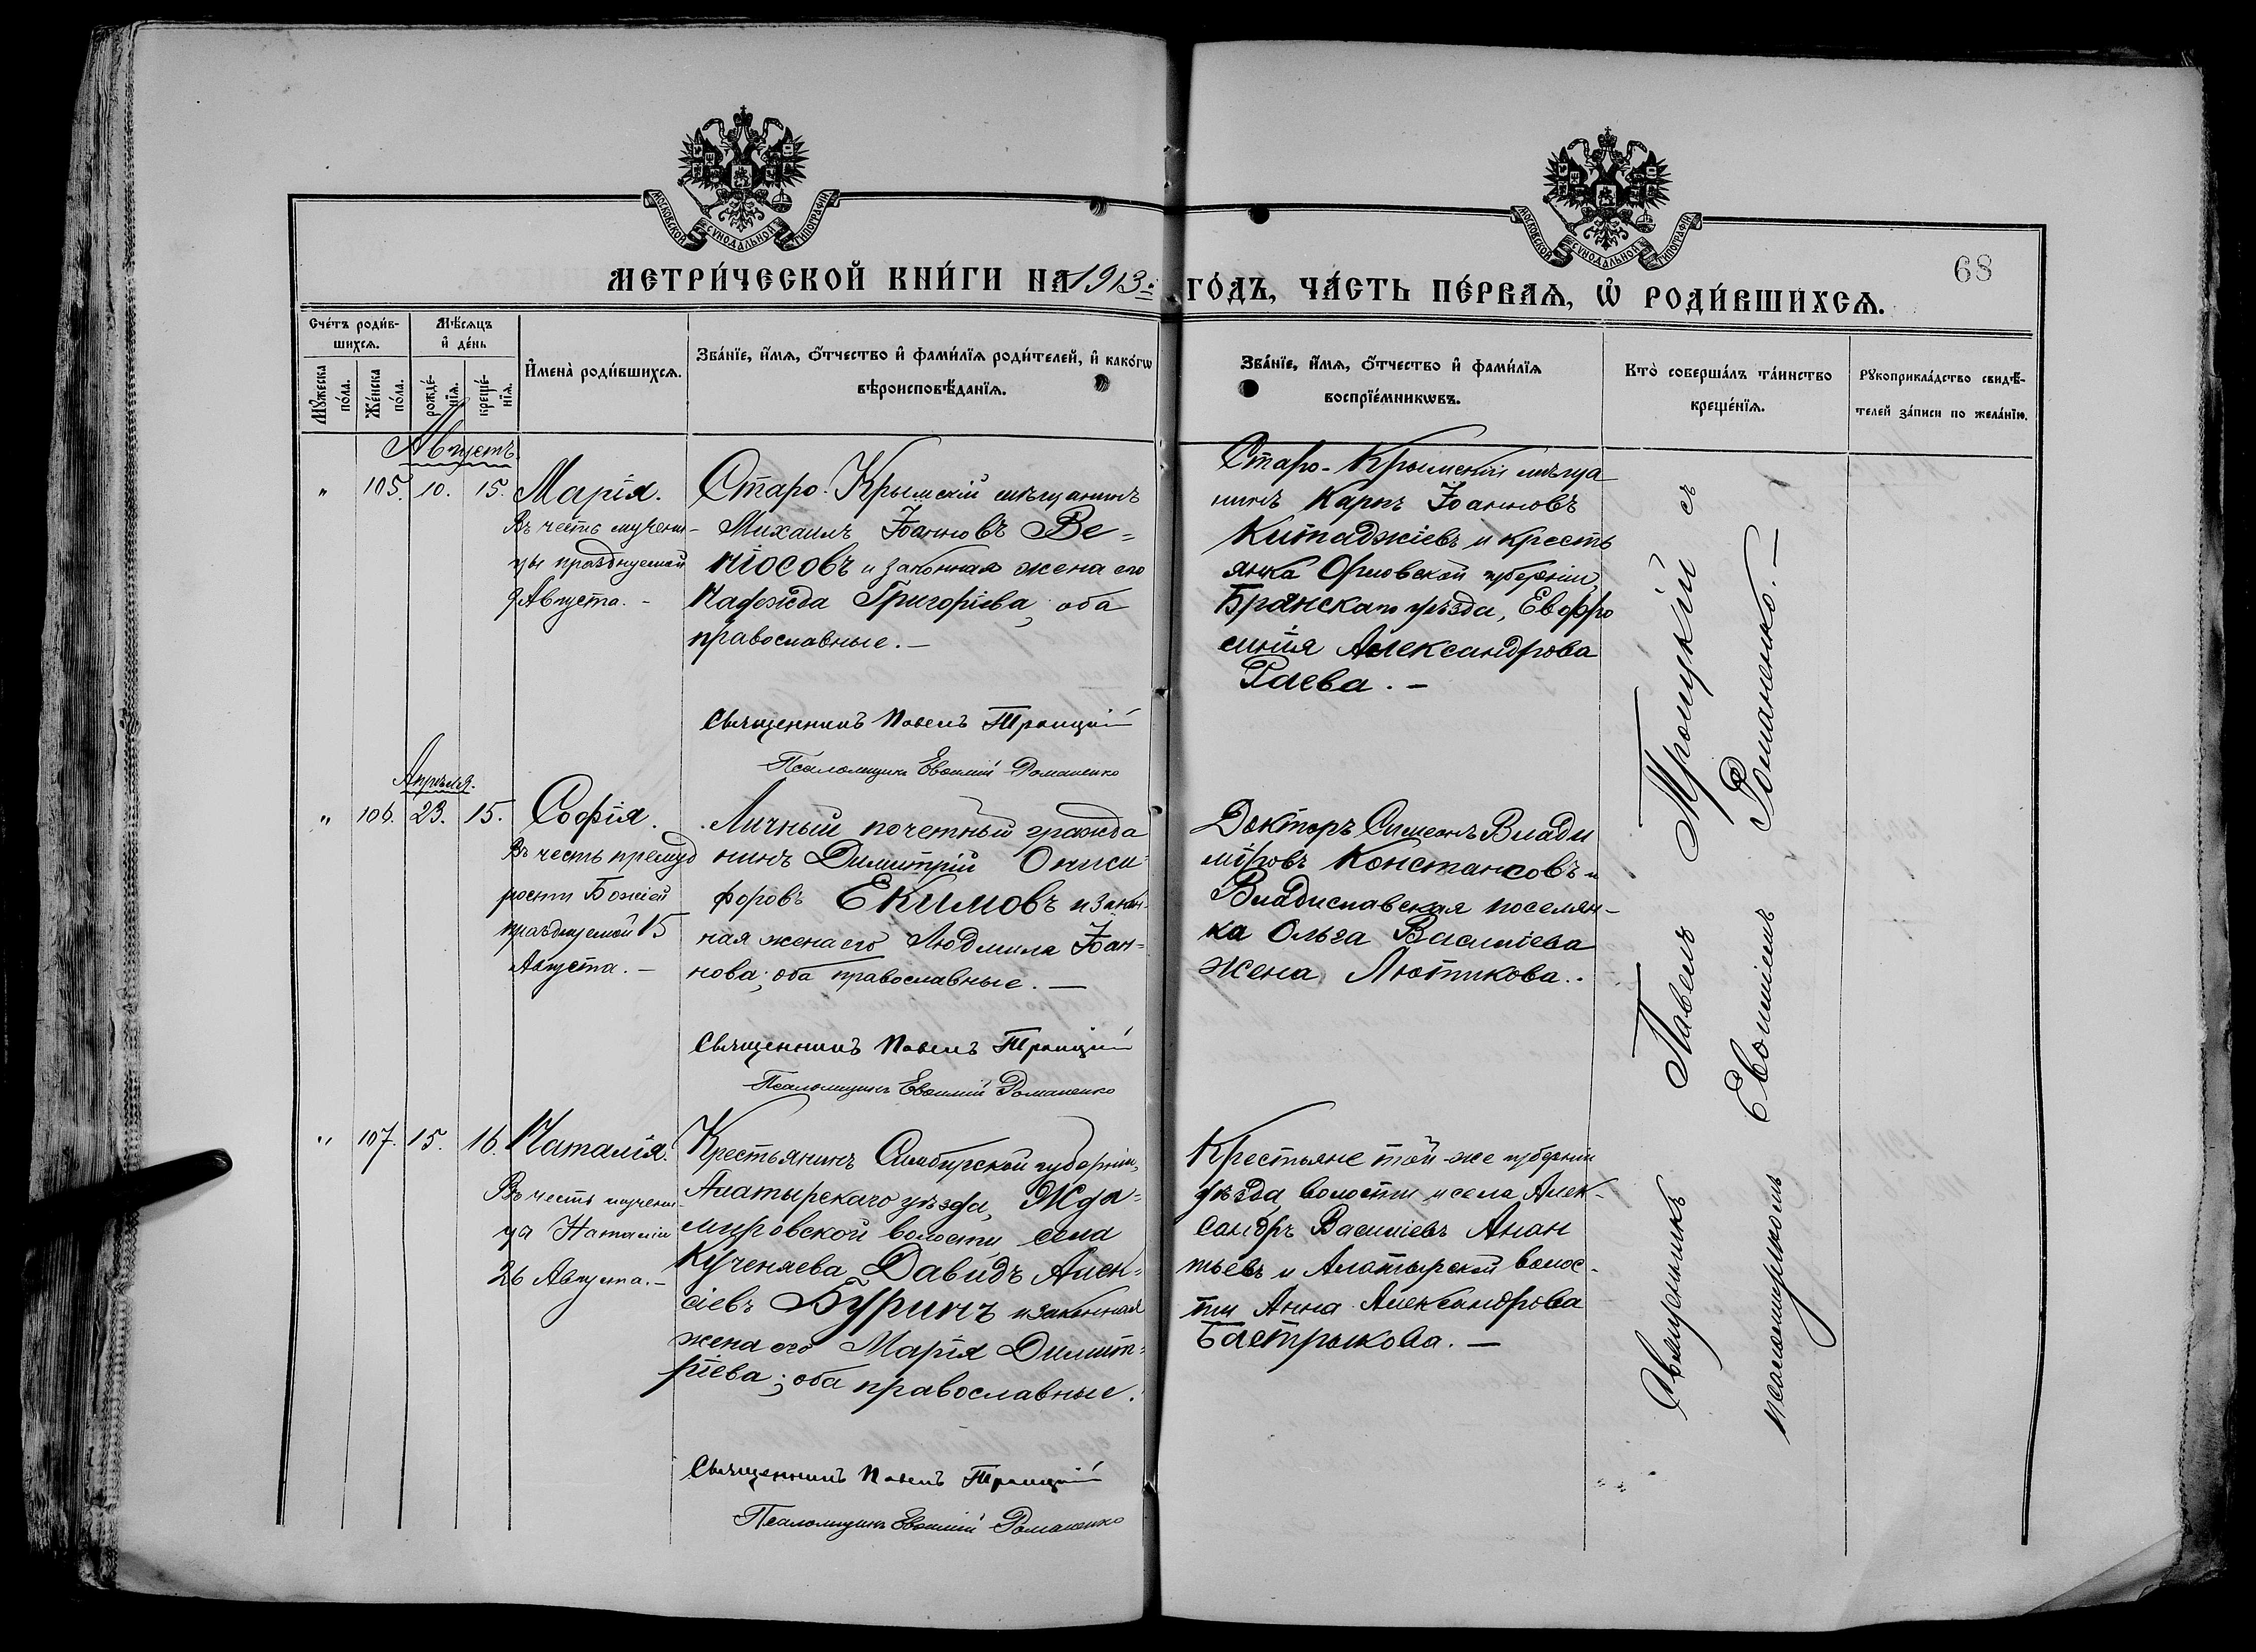 МОСКОВСКОЙ СѴНОДАЛЬНОЙ ТИПОГРАФІИ
МОСКОВСКОЙ СѴНОДАЛЬНОЙ ТИПОГРАФІИ
68
МЕТРИ́ЧЕСКОЙ КНИ́ГИ НА 1913: ГО́ДЪ, ЧА́СТЬ ПЕ́РВАѦ, Ѡ҆ РОДИ́ВШИХСѦ.
Сче́тъ роди́в-
шихсѧ.
Мꙋ́жеска по́ла.
Же́нска по́ла.
Мѣ́сѧцъ и҆ де́нь
рожде́-нїѧ.
креще́-нїѧ.
И҆мена̀ роди́вшихсѧ.
Зва́нїе, и҆́мѧ, ѻ҆́тчество и҆ фами́лїѧ роди́телей, и҆ како́гѡ
вѣроисповѣ́данїѧ.
Зва́нїе, и҆́мѧ, ѻ҆́тчество и҆ фами́лїѧ
воспрїе́мникѡвъ.
Кто̀ соверша́лъ та́инство
креще́нїѧ.
Рꙋкоприкла́дство свидѣ́-
телей за́писи по жела́нїю.
Августъ.
" 105. 10. 15. Марія.
Въ честь мучени-
цы празднуемой
9 Августа. -
Старо-Крымскій мѣщанинъ
Михаилъ Іоанновъ Ве=
ніосовъ и законная жена его
Надежда Григоріева, оба
православные. —
Священникъ Павелъ Троицкій
Псаломщикъ Евѳимій Романенко
Старо-Крымскій мѣща
нинъ Карпъ Іоанновъ
Китаджіевъ и кресть
янка Орловской губерніи,
Брянскаго уѣзда, Евфро
синія Александрова
Раева. —
Апрѣля.
" 106. 23. 15. Софія.
Въ честь премуд
рости Божіей
празднуемой 15
Августа. —
Личный почетный гражда
нинъ Димитрій Ониси=
форовъ Екимовъ и закон-
ная жена его Людмила Іоан=
нова; оба православные. —
Священникъ Павелъ Троицкій
Псаломщикъ Евѳимій Романенко
Докторъ Симеонъ Влади
міровъ Константсовъ и
Владиславская поселян-
ка Ольга Василіева
жена Лютикова..
" 107. 15. 16. Наталія.
Въ честь мучени-
ца Наталіи
26 Августа. —
Крестьянинъ Симбирской губерніи,
Алатырскаго уѣзда, Жда=
мировской волости села
Кученяева Давидъ Алек=
сіевъ Буринъ и законная
жена его Марія Димит=
ріева; оба православные.
Священникъ Павелъ Троицкій
Псаломщикъ Евѳимій Романенко
Крестьяне той-же губерніи
уѣзда, волости и села Алек-
сандръ Василіевъ Анан
тьевъ и Алатырской волос-
ти Анна Александрова
Бастрыкова. —
Священникъ Павелъ Троицкій съ
псаломщикомъ Евѳиміемъ Романенко. —